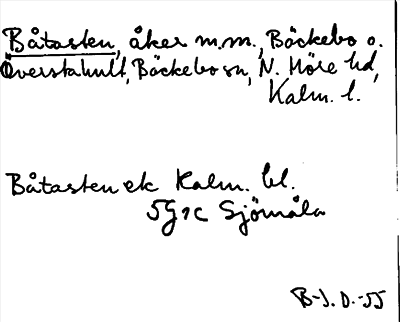 Båtasten, åker m.m., Böckebo o.
Överstahult, Böckebo sn, N. Möre hd,
Kalm. l.
Båtasten ek Kalm. bl.
5G1c Sjömåla
B-J. D. -55